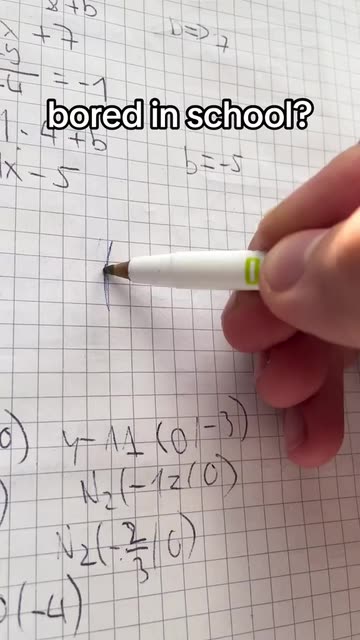 x+b
+7
b=> 7
= -1
bored in school?
1 · 4+b
x - 5
b=-5
0) y-11 (0|-3)
N₂(-12|0)
N₂(-2/3|0)
(-4)